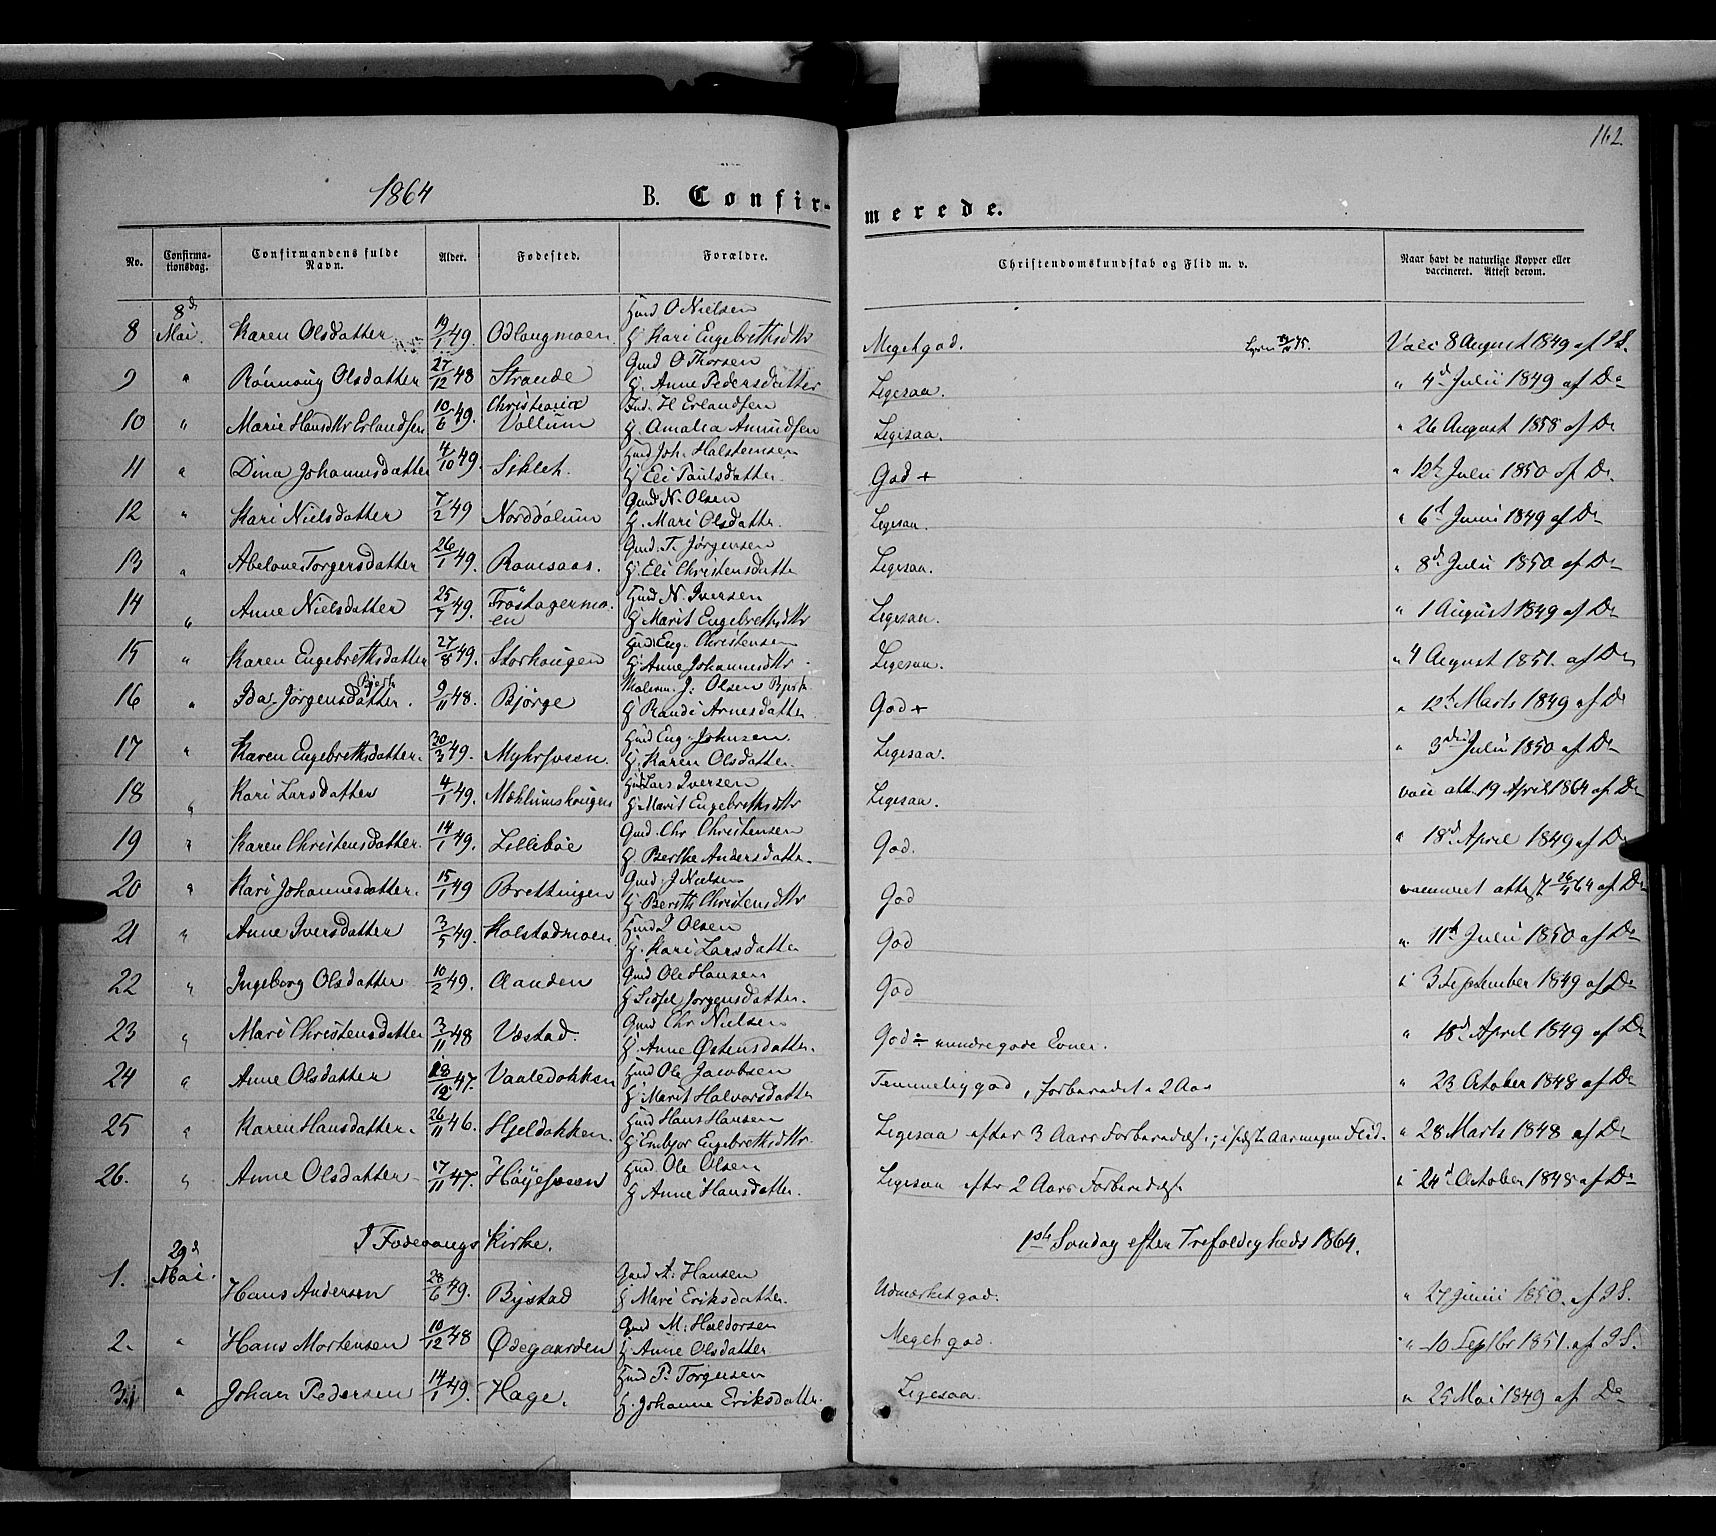 162.
1864 B. Confir-merede.
No. Confirma-tionsdag. Confirmandens fulde Navn. Alder. Fødested. Forældre. Christendomskundskab og Flid m. v. Naar havt de naturlige Kopper eller vaccineret. Attest derom.
8 8d Mai. Karen Olsdatter 19/1 49. Odlaugmoen Huusd O Nielsen H Kari Engebrethsdttr Megetgod. Vacc 8 August 1849 af JS.
9 " Rønnoug Olsdatter 27/12 48 Strande Gmd O Thorsen H. Anne Pedersdatter Ligesaa. " 4d Julii 1849 af Do
10 " Marie Hansdttr Erlandsen 10/6 49. Christiania Vollum Ind. H Erlandsen H. Amalia Amundsen Ligesaa. " 26 August 1858 af Do
11 " Dina Johannesdatter 4/10 49. Sikleh. Huusd Joh. Halsteinsen H Eli Paulsdatter God + " 12te Julii 1850 af Do
12 " Kari Nielsdatter 7/2 49 Norddølum Gmd N. Olsen H. Mari Olsdatter. Ligesaa. " 6d Junii 1849 af Do
13 " Abelone Torgersdatter 26/1 49. Romsaas. Gmd. T. Jørgensen H. Eli Christensdatte Ligesaa. " 8d Julii 1850 af Do
14 " Anne Nielsdatter 25/7 49. Frøstagermoen Huusd N. Iversen H Marit Engebrethsdttr Ligesaa. " 1 August 1849 af Do
15 " Karen Engebrethsdatter 27/8 49. Storhougen Huusd Eng. Christensen H. Anne Johannesdttr. Ligesaa. " 4 August 1851. af Do
16 " Ida Jørgensdatter Bjerke. 9/11 48. Bjørge J. Olsen H Randi Arnesdatter God + " 12te Marts 1849 af Do
17 " Karen Engebrethsdatter. 30/3 49. Myhrsveen. Huusd Eng. Johnsen H. Karen Olsdatter. Ligesaa " 3die Julii 1850 af Do
18 " Kari Larsdatter 4/1 49. Mæhlumshougen Huusd Lars Iversen H. Marit Engebrethsdttr Ligesaa. vacc att. 19 April 1864 af Do
19 " Karen Christensdatter. 14/1 49. Lillibøe Gmd. Chr Christensen H. Berthe Andersdatte. God. " 18d April 1849 af Do
20 " Kari Johannesdatter. 15/1 49 Brettingen Gmd. J Nielsen H Berith Christensdttr God 26/4 64 af Do
21 " Anne Iversdatter 3/5 49. Kolstadmoen Huusd I Olsen H. Kari Larsdatter God " 11te Julii 1850 af Do
22 " Ingeborg Olsdatter 10/2 49. Aanden Gmd Ole Hansen H Sidsel Jørgensdatter. God " 3 September 1849 af Do
23 " Mari Christensdatter 3/11 48 Væstad. Gmd Chr Nielsen H Anne Østensdatter. God ÷ mindregode Evner. " 18d April 1849 af Do
24 " Anne Olsdatter 18/12 47. Vaaledokken Huusd Ole Jacobsen H. Marit Halvorsdatter Temmeliggod, forberedet 2 Aar " 23 October 1848 af Do
25 " Karen Hansdatter. 26/11 46. Hjeldokken. Huusd Hans Hansen H Embjør Engebrethsdttr. Ligesaa efter 3 Aars Forberedels; i sidste Aar megen Flid. " 28 Marts 1848 af Do
26. " Anne Olsdatter 17/11 47. Høyesveen Huusd. Ole Olsen H Anne Hansdatter. Ligesaa efter 2 Aars Forberedelse " 24d October 1848 af Do
I Fodevangs Kirke. 1ste Søndag efter Trefoldigheds 1864.
1. 29d Mai. Hans Andersen 28/6 49. Bystad Gmd A. Hansen H Mari Eriksdatter. Udmærketgod. " 27 Junii 1850. af JS.
2. " Hans Mortensen 10/12 48 Ødegaarden Gmd M. Haldorsen H. Anne Olsdatter Megetgod. " 10 Septbr 1851. af JS.
3. " Johan Pedersen 14/1 49. Hage. Huusd P. Torgersen H. Johanne Eriksdatter. Ligesaa. " 25 Mai 1849 af Do